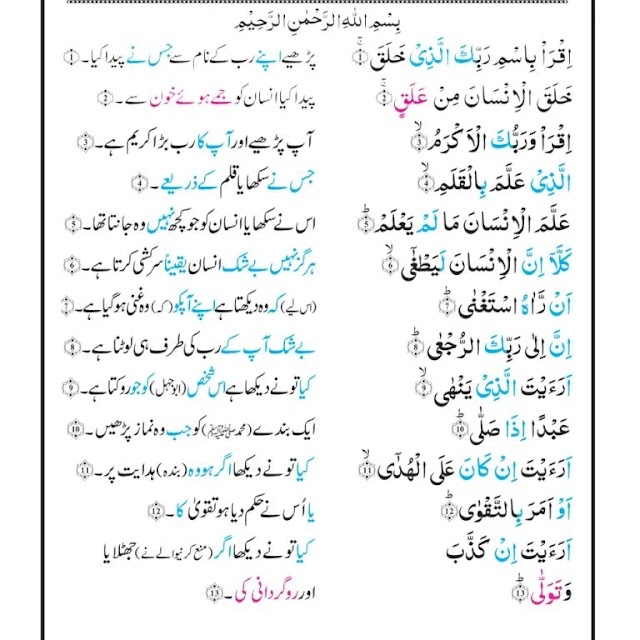 بِسْمِ اللهِ الرَّحْمٰنِ الرَّحِيْمِ
اِقْرَاْ بِاسْمِ رَبِّكَ الَّذِىْ خَلَقَ ۚ﴿1﴾ پڑھیے اپنے رب کے نام سے جس نے پیدا کیا۔﴿1﴾
خَلَقَ الْاِنْسَانَ مِنْ عَلَقٍ ۚ﴿2﴾ پیدا کیا انسان کو جمے ہوئے خون سے۔﴿2﴾
اِقْرَاْ وَرَبُّكَ الْاَكْرَمُ ۙ﴿3﴾ آپ پڑھیے اور آپ کا رب بڑا کریم ہے۔﴿3﴾
الَّذِىْ عَلَّمَ بِالْقَلَمِ ۙ﴿4﴾ جس نے سکھایا قلم کے ذریعے۔﴿4﴾
عَلَّمَ الْاِنْسَانَ مَا لَمْ يَعْلَمْ ؕ﴿5﴾ اس نے سکھایا انسان کو جو کچھ نہیں وہ جانتا تھا۔﴿5﴾
كَلَّاۤ اِنَّ الْاِنْسَانَ لَيَطْغٰٓى ۙ﴿6﴾ ہرگز نہیں بے شک انسان یقیناً سرکشی کرتا ہے۔﴿6﴾
اَنْ رَّاٰهُ اسْتَغْنٰى ؕ﴿7﴾ (اس لیے) کہ وہ دیکھتا ہے اپنے آپکو (کہ) وہ غنی ہو گیا ہے۔﴿7﴾
اِنَّ اِلٰى رَبِّكَ الرُّجْعٰى ؕ﴿8﴾ بے شک آپ کے رب کی طرف ہی لوٹنا ہے۔﴿8﴾
اَرَءَيْتَ الَّذِىْ يَنْهٰى ۙ﴿9﴾ کیا تو نے دیکھا ہے اس شخص (ابوجہل) کو جو روکتا ہے۔﴿9﴾
عَبْدًا اِذَا صَلّٰى ؕ﴿10﴾ ایک بندے (محمد ﷺ) کو جب وہ نماز پڑھیں۔﴿10﴾
اَرَءَيْتَ اِنْ كَانَ عَلَى الْهُدٰٓى ۙ﴿11﴾ کیا تو نے دیکھا اگر ہو وہ (بندہ) ہدایت پر۔﴿11﴾
اَوْ اَمَرَ بِالتَّقْوٰى ؕ﴿12﴾ یا اُس نے حکم دیا ہو تقویٰ کا۔﴿12﴾
اَرَءَيْتَ اِنْ كَذَّبَ کیا تو نے دیکھا اگر (منع کرنیوالے نے) جھٹلایا
وَتَوَلّٰى ؕ﴿13﴾ اور روگردانی کی۔﴿13﴾